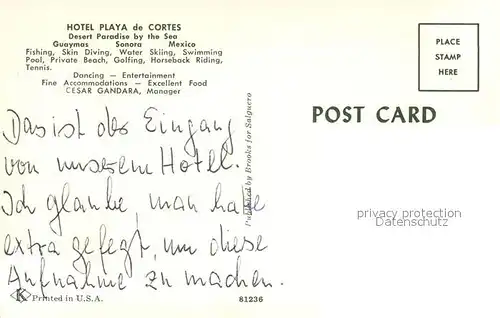 HOTEL PLAYA de CORTES
Desert Paradise by the Sea
Guaymas Sonora Mexico
Fishing, Skin Diving, Water Skiing, Swimming
Pool, Private Beach, Golfing, Horseback Riding,
Tennis.
Dancing — Entertainment
Fine Accommodations — Excellent Food
CESAR GANDARA, Manager
Das ist der Eingang
von unserem Hotel.
Ich glaube, man habe
extra gefegt, um diese
Aufnahme zu machen.
K Printed in U.S.A.
81236
Published by Brooks for Salguero
PLACE
STAMP
HERE
POST CARD
privacy protection
Datenschutz